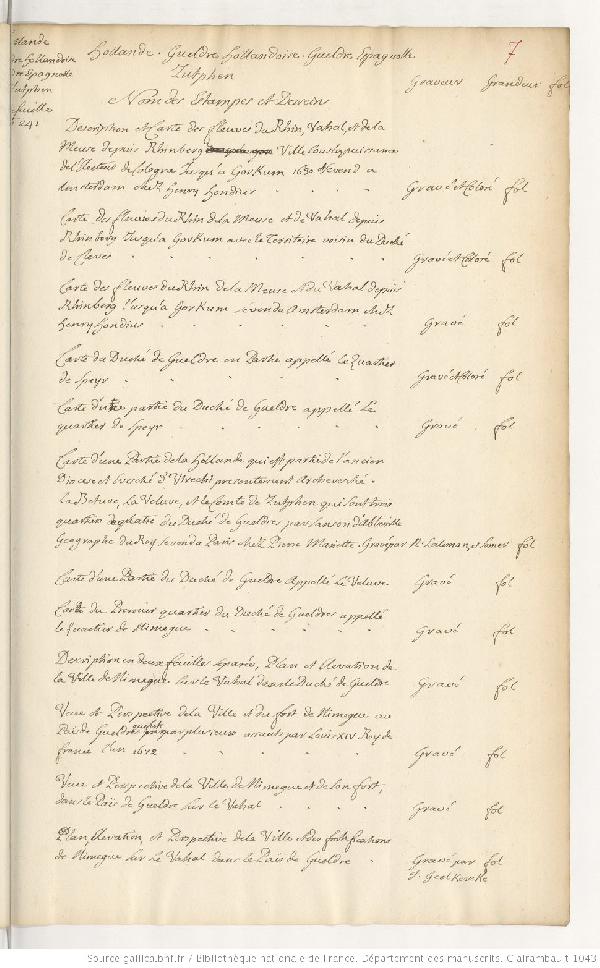 Hollande. Gueldre Hollandoise. Gueldre Espagnolle 7
Zutphen
Graveur Grandeur fol
Noms des Estampes et Desseins
Description et Carte des fleuves du Rhin, Vahal, et de la
Meuse depuis Rhinberg Ville
de l'Electorat de Cologne Jusqu'a Gorkum 1630 Se vend a
Amsterdam chez Henry Hondius Gravé et Coloré fol
Carte des fleuves du Rhin de la Meuse et de Vahal depuis
Rhinberg Jusqu'a Gorkum avec le Territoire voisin du Duché
de Cleves Gravé et Coloré fol
Carte des fleuves du Rhin de la Meuse et du Vahal depuis
Rhinberg Jusqu'a Gorkum se vend a Amsterdam chez
Henry Hondius Gravé fol
Carte du Duché de Gueldre en Partie appellé le Quartier
de Speyr Gravé et Coloré fol
Carte d'une partie du Duché de Gueldre appellé Le
quartier de Speyr Gravé fol
Carte d'une Partie de la Hollande qui est partie de l'ancien
Diocese et Evesché d'Utrecht presentement Archevesché.
La Betuve, La Veluve, et le Comté de Zutphen qui sont trois
quartiers du Duché de Gueldres par Sanson d'Abbeville
Geographe du Roy, se vend a Paris chez Pierre Mariette. Gravé par R. Cordier fol
Carte d'une Partie du Duché de Gueldre Appellé Le Veluve. Gravé fol
Carte du Premier quartier du Duché de Gueldres appellé
le quartier de Nimegue Gravé fol
Description en deux feuilles separées, Plan et Elevation de
la Ville de Nimegue sur le Vahal dans le Duché de Gueldre Gravé fol
Veue et Perspective de la Ville et du fort de Nimegue au
Païs de Gueldre par Louis XIV Roy de
france l'an 1672 Gravé fol
Veue et Perspective de la Ville de Nimegue et de son fort,
dans le Païs de Gueldre sur le Vahal Gravé fol
Plan, Elevation, et Perspective de la Ville et des fortifications
de Nimegue sur le Vahal dans le Païs de Gueldre Gravé par fol
J. Geelkercke
Source gallica.bnf.fr / Bibliothèque nationale de France. Département des manuscrits. Clairambault 1043